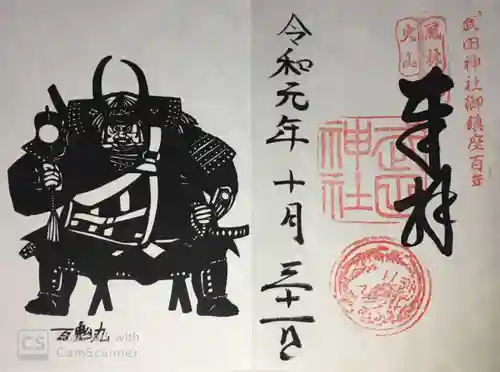 武田神社御鎮座百年
風林
火山
奉拝
武田
神社
令和元年十月三十一日
百鬼丸
CS
Scanned with
CamScanner